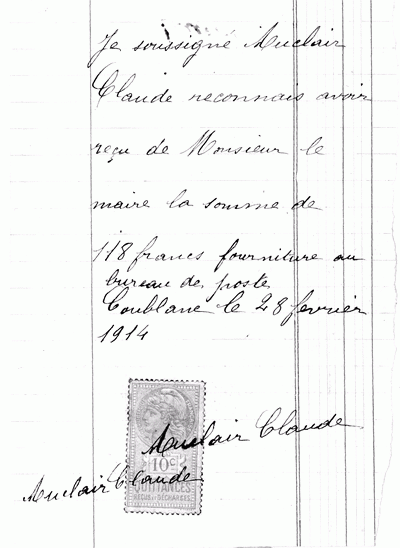 Je soussigné Auclair
Claude reconnais avoir
reçu de Monsieur le
maire la somme de
118 francs fourniture au
bureau de poste
Coublanc le 28 fevrier
1914
Auclair Claude
10c
Auclair Claude
QUITTANCES
REÇUS ET DÉCHARGES